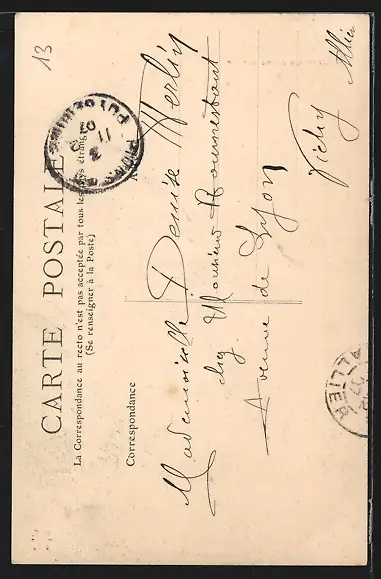 13
CARTE POSTALE
La Correspondance au recto n'est pas acceptée par tous les pays étrangers
(Se renseigner à la Poste)
Correspondance
A
Mademoiselle Denise Merlin
chez Monsieur
Avenue de Lyon
Vichy Allier
PUY DE DÔME
ALLIER